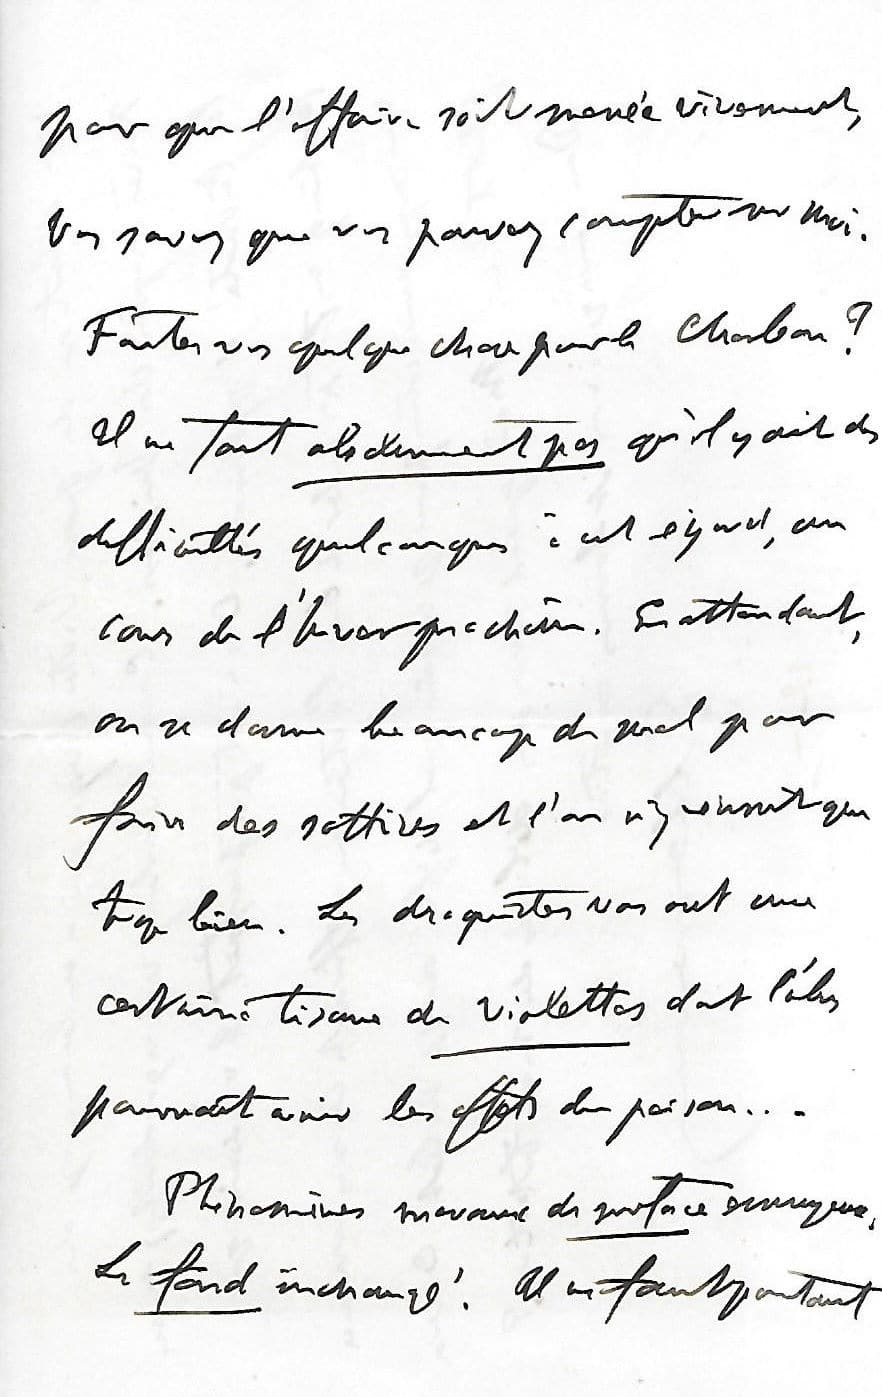 pour que l'affaire soit menée vivement,
Vous savez que vous pouvez compter sur moi.
Faites vous quelque chose pour le Charbon ?
Il ne faut absolument pas qu'il y ait des
difficultés quelconques à cet égard, au
cours de l'hiver prochain. En attendant,
on se donne beaucoup de mal pour
faire des sottises et l'on n'y réussit que
trop bien. Les droguistes vous ont une
certaine tisane de violettes dont l'abus
pourrait avoir les effets du poison...
Phénomènes moraux de surface ennuyeux,
Le fond inchangé. Il ne faut pourtant